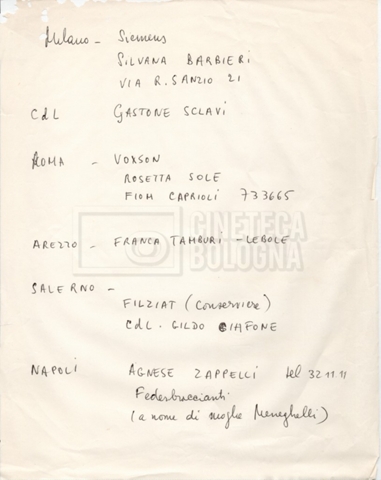 Milano - Siemens
SILVANA BARBIERI
VIA R. SANZIO 21
CdL GASTONE SCLAVI
ROMA - VOXSON
ROSETTA SOLE
FIOM CAPRIOLI 733665
CINETECA
BOLOGNA
AREZZO - FRANCA TAMBURI - LEBOLE
SALERNO -
FILZIAT (Conserviere)
CdL. GILDO CIAFONE
NAPOLI AGNESE ZAPPELLI tel 321111
Federbraccianti
(a nome di moglie Meneghelli)